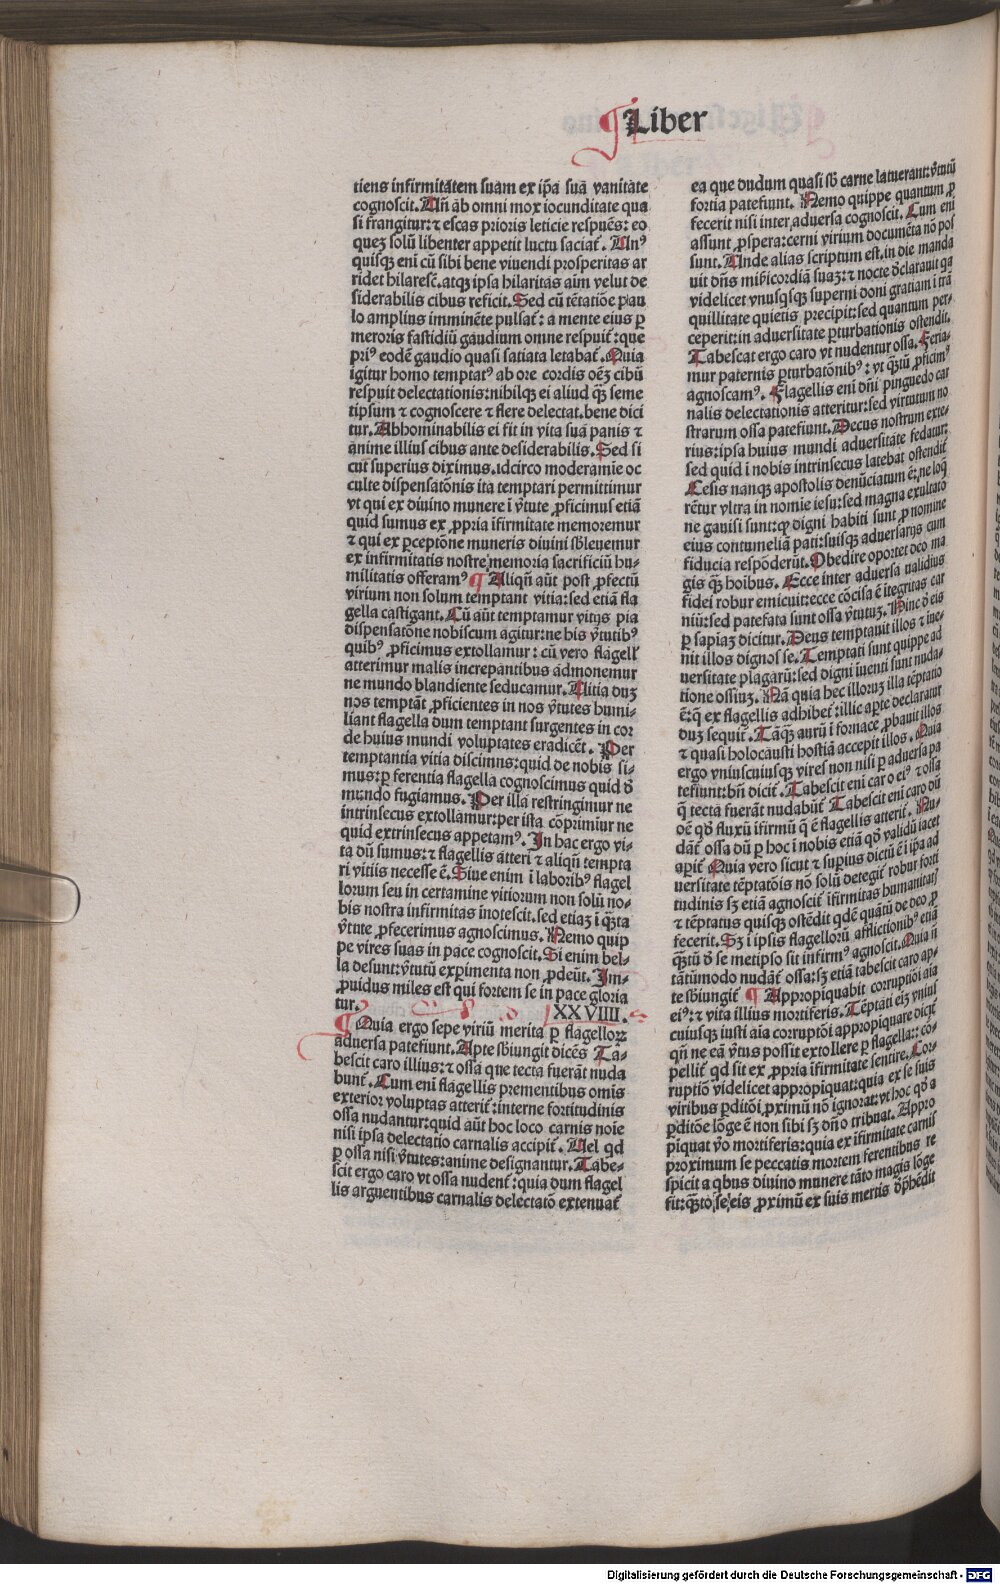 Liber
tiens infirmitātem suam ex ip̄a suā vanitate
cognoscit. Uñ ab omni mox iocunditate qua
si frangitur: ⁊ escas prioris leticie respuēs: eo
quez solū libenter appetit luctu saciat̄. Unꝰ
quisqꝫ eni cū sibi bene viuendi prosperitas ar
ridet hilaresc̄. atqꝫ ipsa hilaritas aīm velut de
siderabilis cibus reficit. Sed cū tētatiōe pau
lo amplius imminēte pulsat̄: a mente eius ꝑ
meroris fastidiū gaudium omne respuit̄: que
priꝰ eodē gaudio quasi satiata letabat̄. Quia
igitur homo temptatꝰ ab ore cordis oēꝫ cibū
respuit delectationis: nihilqꝫ ei aliud qꝫ̄ seme
tipsum ⁊ cognoscere ⁊ flere delectat. bene dici
tur. Abhominabilis ei fit in vita suā panis ⁊
anime illius cibus ante desiderabilis. Sed si
cut superius diximus. idcirco moderamīe oc
culte dispensatōnis ita temptari permittimur
vt qui ex diuino munere i v̄tute ꝓficimus etiā
quid sumus ex ꝓpria īfirmitate memoremur
⁊ qui ex ꝑceptōne muneris diuini sb̄leuemur
ex infirmitatis nostre memoria sacrificiū hu-
militatis offeramꝰ ¶ Aliqñ aūt post ꝓfectū
virium non solum temptant vitia: sed etiā fla
gella castigant. Cū aūt temptamur vitijs pia
dispensatōne nobiscum agitur: ne his v̄tutibꝰ
quibꝰ ꝓficimus extollamur: cū vero flagell̄
atterimur malis increpantibus admonemur
ne mundo blandiente seducamur. Uitia duꝫ
nos temptāt ꝓficientes in nos v̄tutes humi-
liant flagella dum temptant surgentes in cor
de huius mundi voluptates eradicēt. Per
temptantia vitia discimus: quid de nobis si-
mus: ꝑ ferentia flagella cognoscimus quid ð
mundo fugiamus. Per illa restringimur ne
intrinsecus extollamur: per ista cōprimiur ne
quid extrinsecus appetamꝰ. In hac ergo vi-
ta dū sumus: ⁊ flagellis atteri ⁊ aliqñ tempta
ri vitiis necesse ē. Siue enim i laboribꝰ flagel
lorum seu in certamine vitiorum non solū no-
bis nostra infirmitas inotescit. sed etiaꝫ i qꝫ̄ta
v̄tute ꝓfecerimus agnoscimus. Nemo quip
pe vires suas in pace cognoscit. Si enim bel-
la desunt: v̄tutū experimenta non ꝓdeūt. Im-
ꝓuidus miles est qui fortem se in pace gloria
tur. XXVIIII.
Quia ergo sepe viriū merita ꝑ flagelloꝝ
aduersa patefiunt. Apte sb̄iungit dicēs Ta-
bescit caro illius: ⁊ ossā que tecta fuerāt nuda
bunt̄. Cum eni flagellis prementibus omīs
exterior voluptas atterit̄: interne fortitudinis
ossa nudantur: quid aūt hoc loco carnis noīe
nisi ipsa delectatio carnalis accipit̄. Uel qd
ꝑ ossa nisi v̄tutes: anime designantur. Tabe-
scit ergo caro vt ossa nudent̄: quia dum flagel
lis arguentibus carnalis delectatō extenuat̄
ea que dudum quasi sb̄ carne latuerant: v̄tutū
fortia patefiunt. Nemo quippe quantum ꝓ
fecerit nisi inter aduersa cognoscit. Cum eni
assunt ꝓspera: cerni virium documēta nō pos
sunt. Unde alias scriptum est. in die manda
uit dn̄s mīb̄icordiā suaꝫ: ⁊ nocte ðclarauit qa
videlicet vnusqͥsqꝫ superni doni gratiam i trā
quillitate quietis precipit: sed quantum per-
ceperit: in aduersitate ꝑturbationis ostendit.
Tabescat ergo caro vt nudentur ossa. Feria-
mur paternis ꝑturbatōnibꝰ: vt qꝫ̄tū ꝓficimꝰ
agnoscamꝰ. Flagellis eni dn̄i pinguedo car
nalis delectationis atteritur: sed virtutum no
strarum ossa patefiunt. Decus nostrum exte-
rius: ipsa huius mundi aduersitate fedatur:
sed quid i nobis intrinsecus latebat ostendit̄
Cesis nanqꝫ apostolis denūciatum ē: ne loq̄
rētur vltra in nomīe iesu: sed magna exultatō
ne gauisi sunt: qꝫ digni habiti sunt ꝓ nomine
eius contumeliā pati: suisqꝫ aduersarijs cum
fiducia respōderūt. Obedire oportet deo ma
gis qꝫ̄ hoībus. Ecce inter aduersa validius
fidei robur emicuit: ecce cōcisa ē ītegritas car
niū: sed patefata sunt ossa v̄tutuꝫ. Hinc ð eis
ꝑ sapīaꝫ dicitur. Deus temptauit illos ⁊ iue-
nit illos dignos se. Temptati sunt quippe ad
uersitate plagarū: sed digni īuenti sunt nuda-
tione ossiuꝫ. Nā quia hec illoruꝫ illa tēptatio
ē: q̄ ex flagellis adhibet̄: illic aꝑte declaratur
duꝫ sequit̄. Tāqꝫ̄ aurū i fornace ꝓbauit illos
⁊ quasi holocausti hostiā accepit illos. Quia
ergo vniuscuiusqꝫ vires non nisi ꝑ aduersa pa
tefiunt: bn̄ dicit̄. Tabescit eni caro eiꝰ ⁊ ossa
q̄ tecta fuerāt nudabūt̄ Tabescit eni caro dū
oē qð fluxū īfirmū q̄ ē flagellis atterit̄. Nu-
dāt̄ ossa dū ꝑ hoc i nobis etiā qð validū iacet
aꝑit̄ Quia vero sicut ⁊ superius dictū ē i ip̄a ad
uersitate tēptatōis nō solū detegit̄ robur forti
tudinis sꝫ etiā agnoscit̄ īfirmitas humanitatꝭ
⁊ tēptatus quisqꝫ ostēdit qdē quātū de deo ꝓ
fecerit. Sꝫ i ipsis flagellorū afflictionibꝰ etiā
qꝫ̄tū ð se metipso sit infirmꝰ agnoscit. Quia ñ
tātūmodo nudāt̄ ossa: sꝫ etiā tabescit caro ap-
te sb̄iungit̄ ¶ Appropiquabit corruptiōi aīa
eiꝰ: ⁊ vita illius mortiferis. Tēptati eiꝫ vniuſ
cuiusqꝫ iusti aīa corruptōi appropiquare dicit̄
qñ ne eā v̄tus possit extollere ꝑ flagella: cō-
pellit̄ qd sit ex ꝓpria īfirmitate sentire. Cor-
ruptiō videlicet appropiquat: quia ex se suis
viribus ꝑditōi ꝓximū nō ignorat: vt hoc qð a
ꝑditōe lōge ē non sibi sꝫ dn̄o tribuat. Appro
piquat v̄o mortiferis: quia ex īfirmitate carnis
proximum se peccatis mortem ferentibus re
spicit a qbus diuino munere tāto magis lōge
fit: qꝫ̄to se eis ꝓximū ex suis meritis ðph̄edit
Digitalisierung gefördert durch die Deutsche Forschungsgemeinschaft - DFG